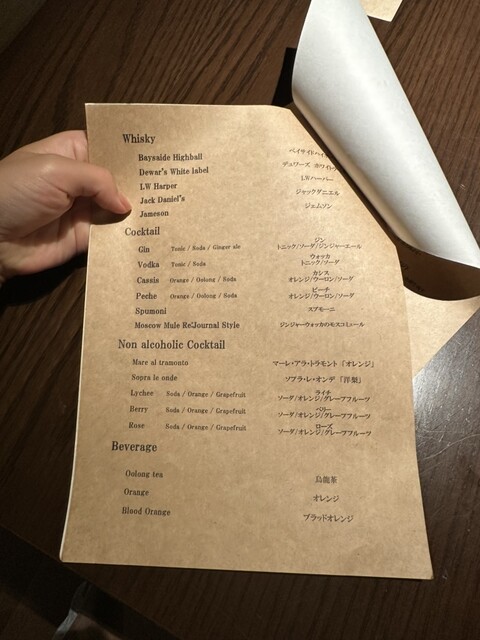 Whisky
Bayside Highball ベイサイドハイ
Dewar's White label デュワーズ ホワイト
LW Harper LWハーパー
Jack Daniel's ジャックダニエル
Jameson ジェムソン
Cocktail
Gin Tonic / Soda / Ginger ale ジン
トニック/ソーダ/ジンジャーエール
Vodka Tonic / Soda ウォッカ
トニック/ソーダ
Cassis Orange / Oolong / Soda カシス
オレンジ/ウーロン/ソーダ
Peche Orange / Oolong / Soda ピーチ
オレンジ/ウーロン/ソーダ
Spumoni スプモーニ
Moscow Mule Re:Journal Style ジンジャーウォッカのモスコミュール
Non alcoholic Cocktail
Mare al tramonto マーレ・アラ・トラモント「オレンジ」
Sopra le onde ソプラ・レ・オンデ「洋梨」
Lychee Soda / Orange / Grapefruit ライチ
ソーダ/オレンジ/グレープフルーツ
Berry Soda / Orange / Grapefruit ベリー
ソーダ/オレンジ/グレープフルーツ
Rose Soda / Orange / Grapefruit ローズ
ソーダ/オレンジ/グレープフルーツ
Beverage
Oolong tea 烏龍茶
Orange オレンジ
Blood Orange ブラッドオレンジ